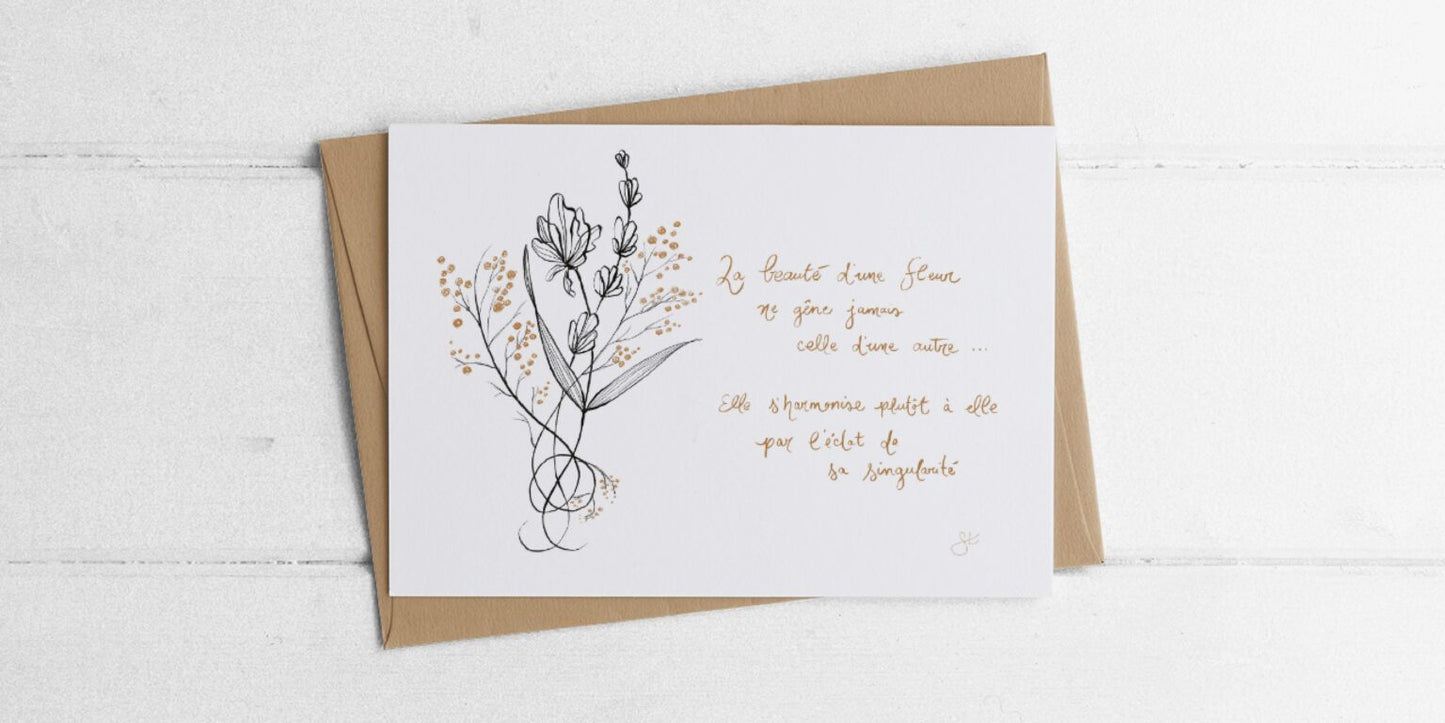 La beauté d'une fleur
ne gêne jamais
celle d'une autre ...
Elle s'harmonise plutôt à elle
par l'éclat de
sa singularité
SK